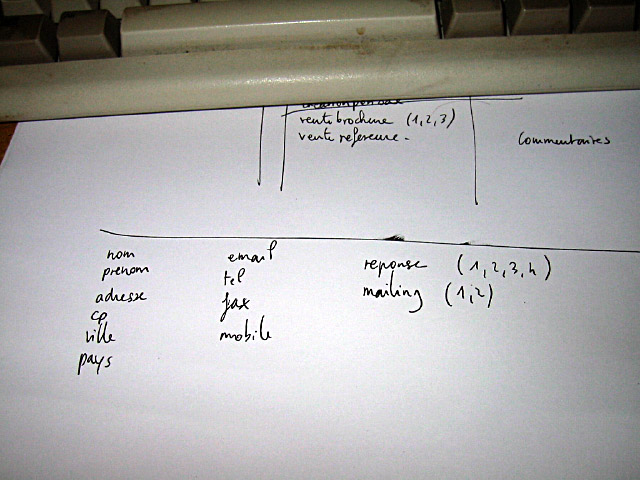 vente brochure (1,2,3)
vente reference -
Commentaires
nom
prenom
adresse
cp
ville
pays
email
tel
fax
mobile
reponse (1,2,3,4)
mailing (1,2)